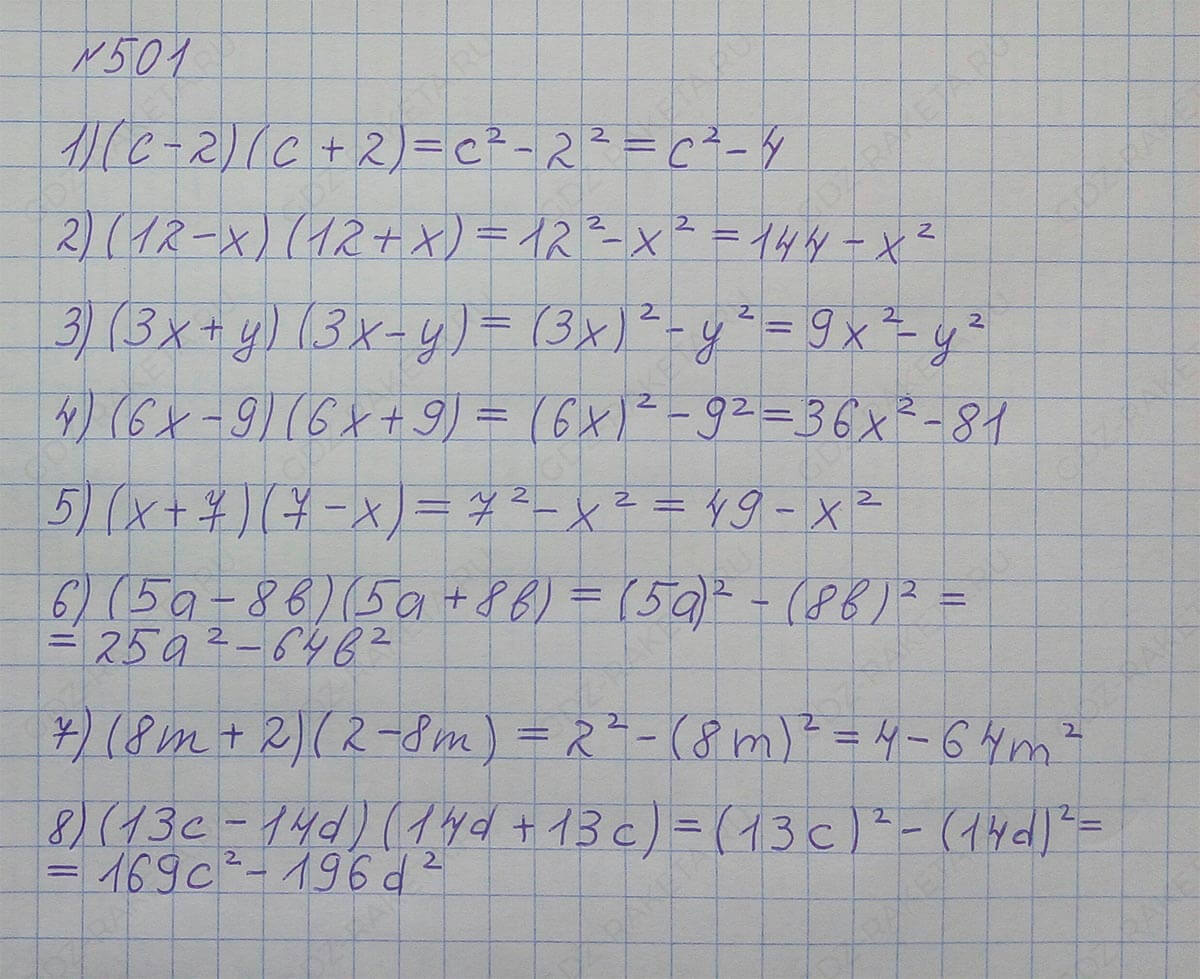 №501
1) (c - 2) (c + 2) = c² - 2² = c² - 4
2) (12 - x) (12 + x) = 12² - x² = 144 - x²
3) (3x + y) (3x - y) = (3x)² - y² = 9x² - y²
4) (6x - 9) (6x + 9) = (6x)² - 9² = 36x² - 81
5) (x + 7) (7 - x) = 7² - x² = 49 - x²
6) (5a - 8в) (5a + 8в) = (5a)² - (8в)² =
= 25a² - 64в²
7) (8m + 2) (2 - 8m) = 2² - (8m)² = 4 - 64m²
8) (13c - 14d) (14d + 13c) = (13c)² - (14d)² =
= 169c² - 196d²
GDZ-RAKETA.RU